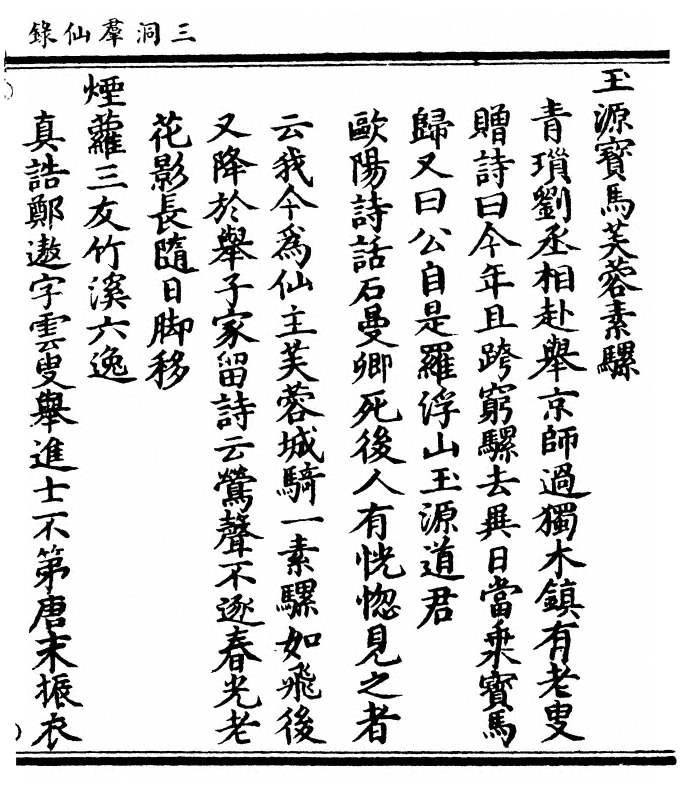 三洞羣仙錄
玉源寶馬芙蓉素騾
青瑣劉丞相赴舉京師過獨木鎮有老叟
贈詩曰今年且跨窮騾去異日當乗寶馬
歸又曰公自是羅浮山玉源道君
歐陽詩話石曼卿死後人有恍惚見之者
云我今為仙主芙蓉城騎一素騾如飛後
又降於舉子家留詩云鶯聲不逐春光老
花影長隨日脚移
煙蘿三友竹溪六逸
真誥鄭遨字雲叟舉進士不第唐末振衣